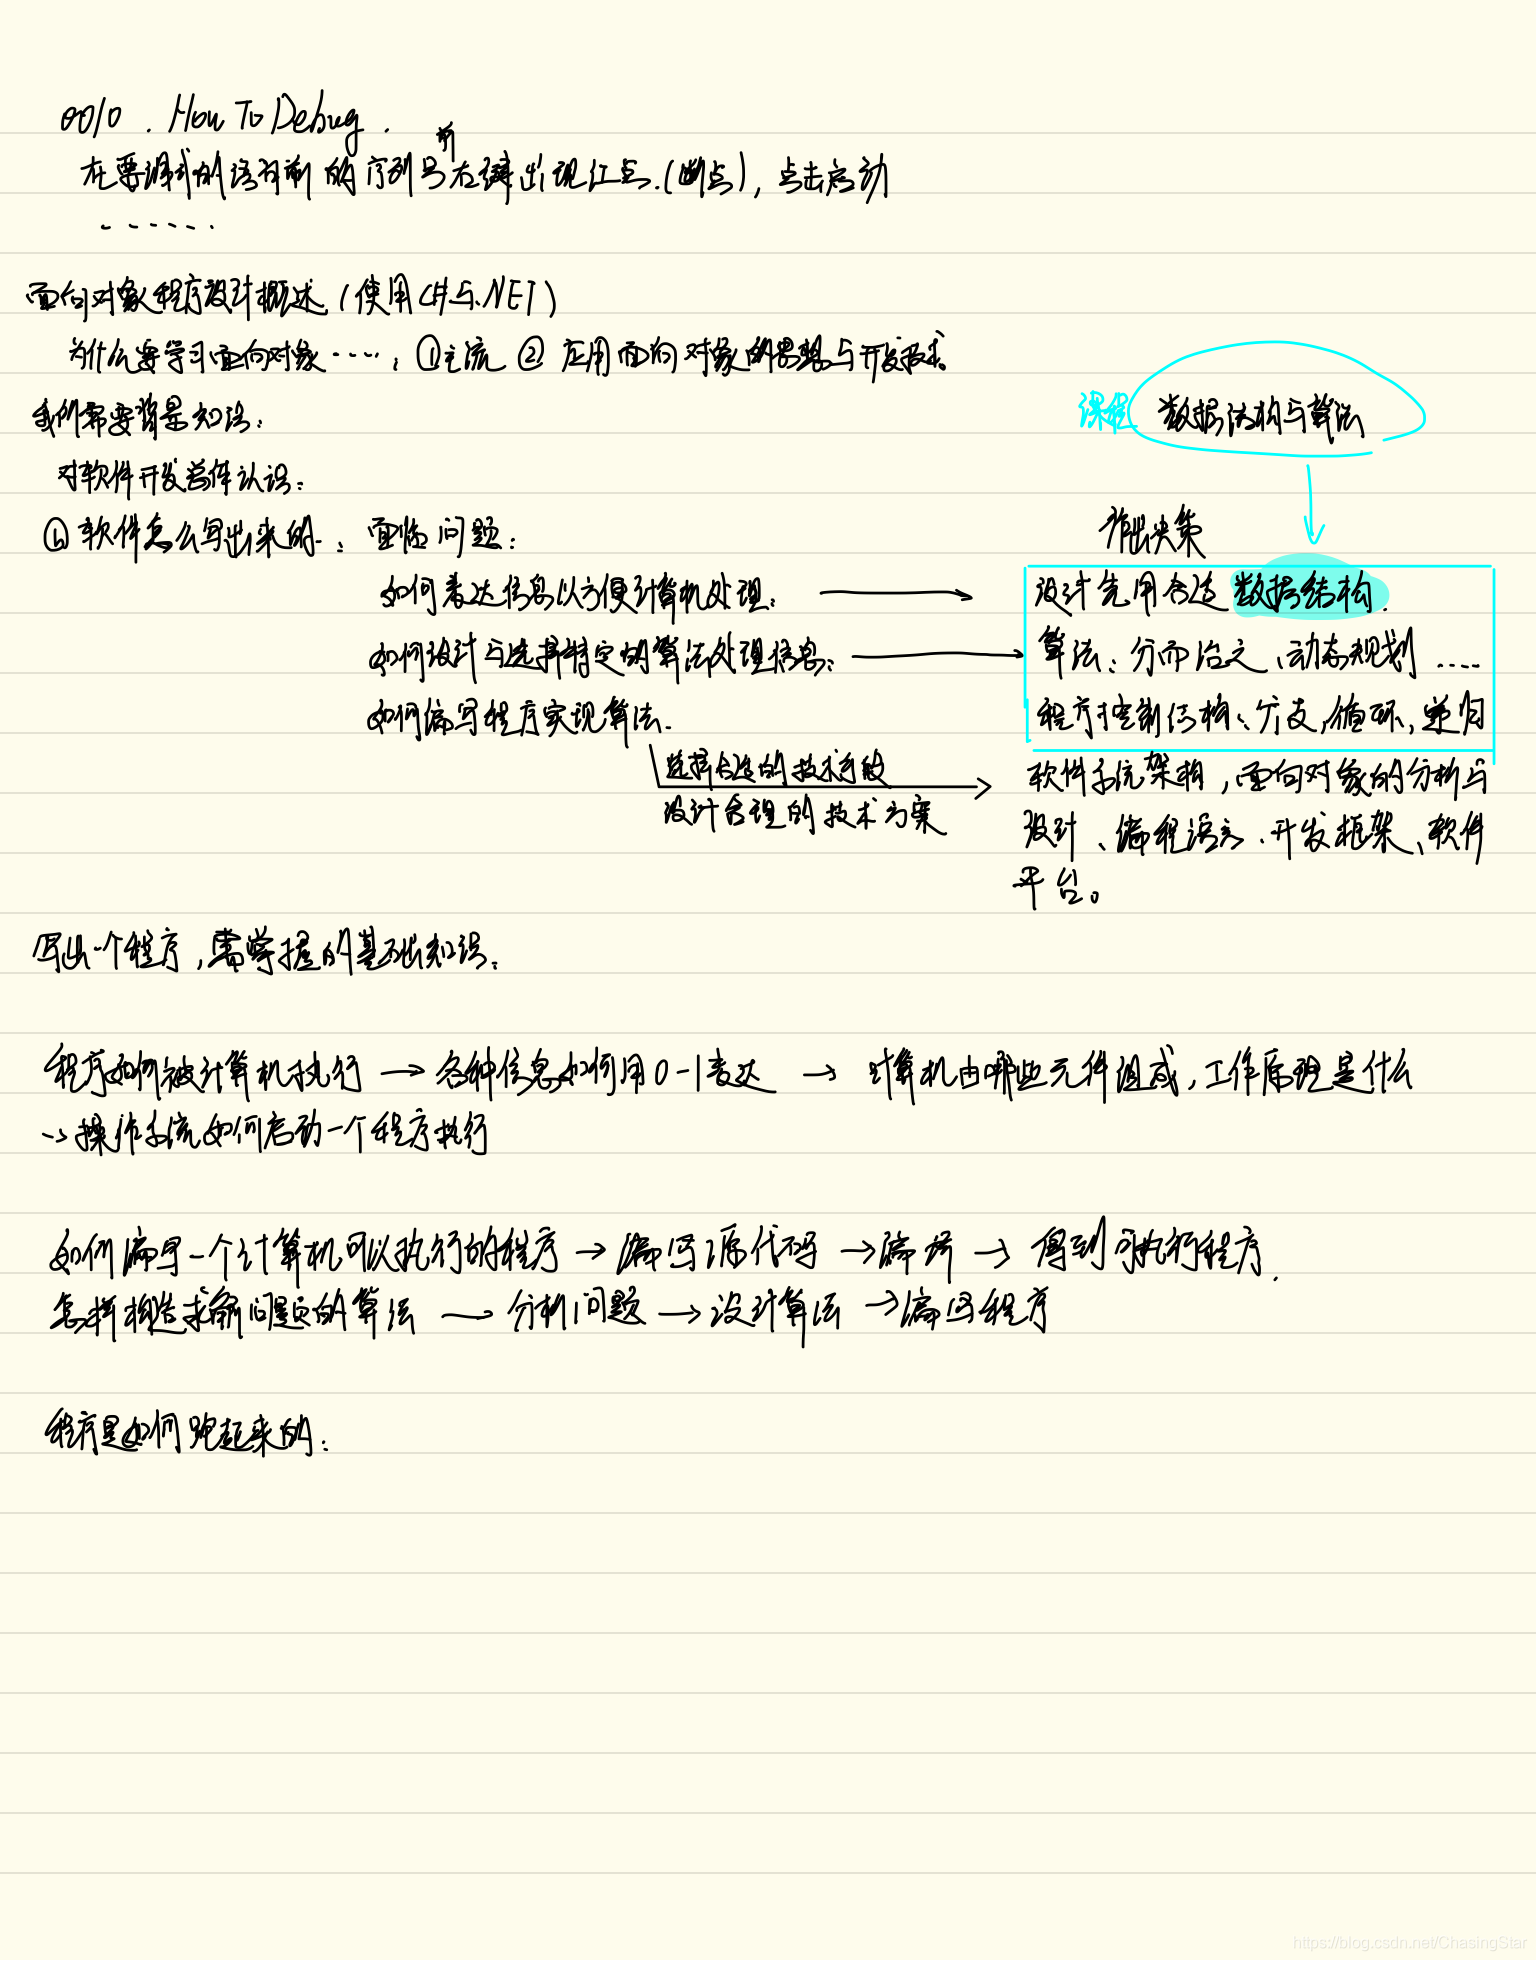 0010. How To Debug.
在要调试的语句前的序列号前右键出现红点.(断点), 点击启动
......
面向对象程序设计概述 (使用C#与.NET)
为什么要学习面向对象 ·····: ①主流 ② 应用面向对象的思想与开发技术。
我们需要背景知识:
对软件开发总体认识:
软件怎么写出来的. : 面临问题:
如何表达信息以方便计算机处理:
如何设计与选择特定的算法处理信息:
如何编写程序实现算法.
选择合适的技术手段
设计合理的技术方案
课程 数据结构与算法
作出决策
设计选用合适数据结构.
算法: 分而治之、动态规划 ....
程序控制结构: 分支, 循环, 递归
软件系统架构, 面向对象的分析与
设计、编程语言、开发框架、软件
平台。
写出一个程序, 需掌握的基础知识:
程序如何被计算机执行 → 各种信息如何用0-1表达 → 计算机由哪些元件组成, 工作原理是什么
→ 操作系统如何启动一个程序执行
如何编写一个计算机可以执行的程序 → 编写源代码 → 编译 → 得到可执行程序.
怎样构造求解问题的算法 → 分析问题 → 设计算法 → 编写程序
程序是如何跑起来的:
https://blog.csdn.net/ChasingStar